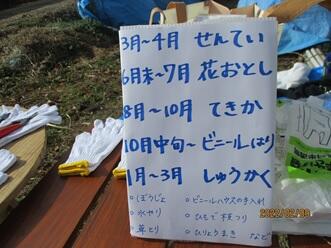 3月~4月 せんてい
6月末~7月 花おとし
8月~10月 てきか
10月中旬~ビニールはり
1月~3月 しゅうかく
○ぼうじょ ○ビニールハウスの手入れ
○水やり ○ひもで下葉つり
○草とり ○ひりょうまき など